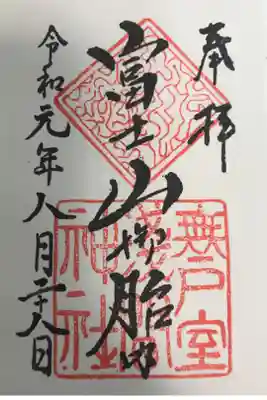 奉拝
富士山御胎内
令和元年八月二八日
無戸室
神社